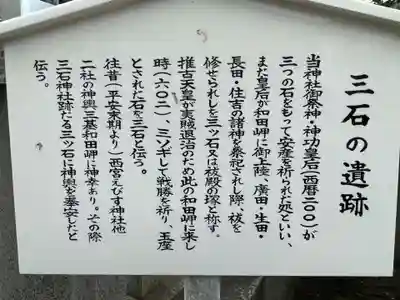 三石の遺跡
当神社御祭神・神功皇后(西暦二〇〇)が
三つの石をもって安産を祈られた処といい、
また皇后が和田岬に御上陸、廣田・生田・
長田・住吉の諸神を祭祀されし際、祓を
修せられしを三ッ石又は祓殿の塚と称す。
推古天皇が夷賊退治のため此の和田岬に来し
時(六〇二)、ミソギして戦勝を祈り、玉座
とされた石を三石と伝う。
往昔(平安末期より)西宮えびす神社他
二社の神輿三基和田岬に神幸あり。その際
三石神社跡たる三ッ石に神輿を奉安したと
伝う。